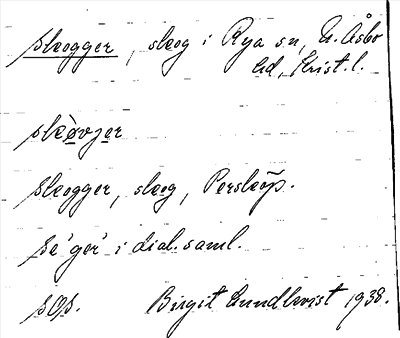 slægger, slæg i Rya sn, N. Åsbo
hd, Krist. l.
slæøvjer
slægger, slæg, Perslöv.
se 'ger' i dial. saml.
sOs. Birgit Lundkvist 1938.